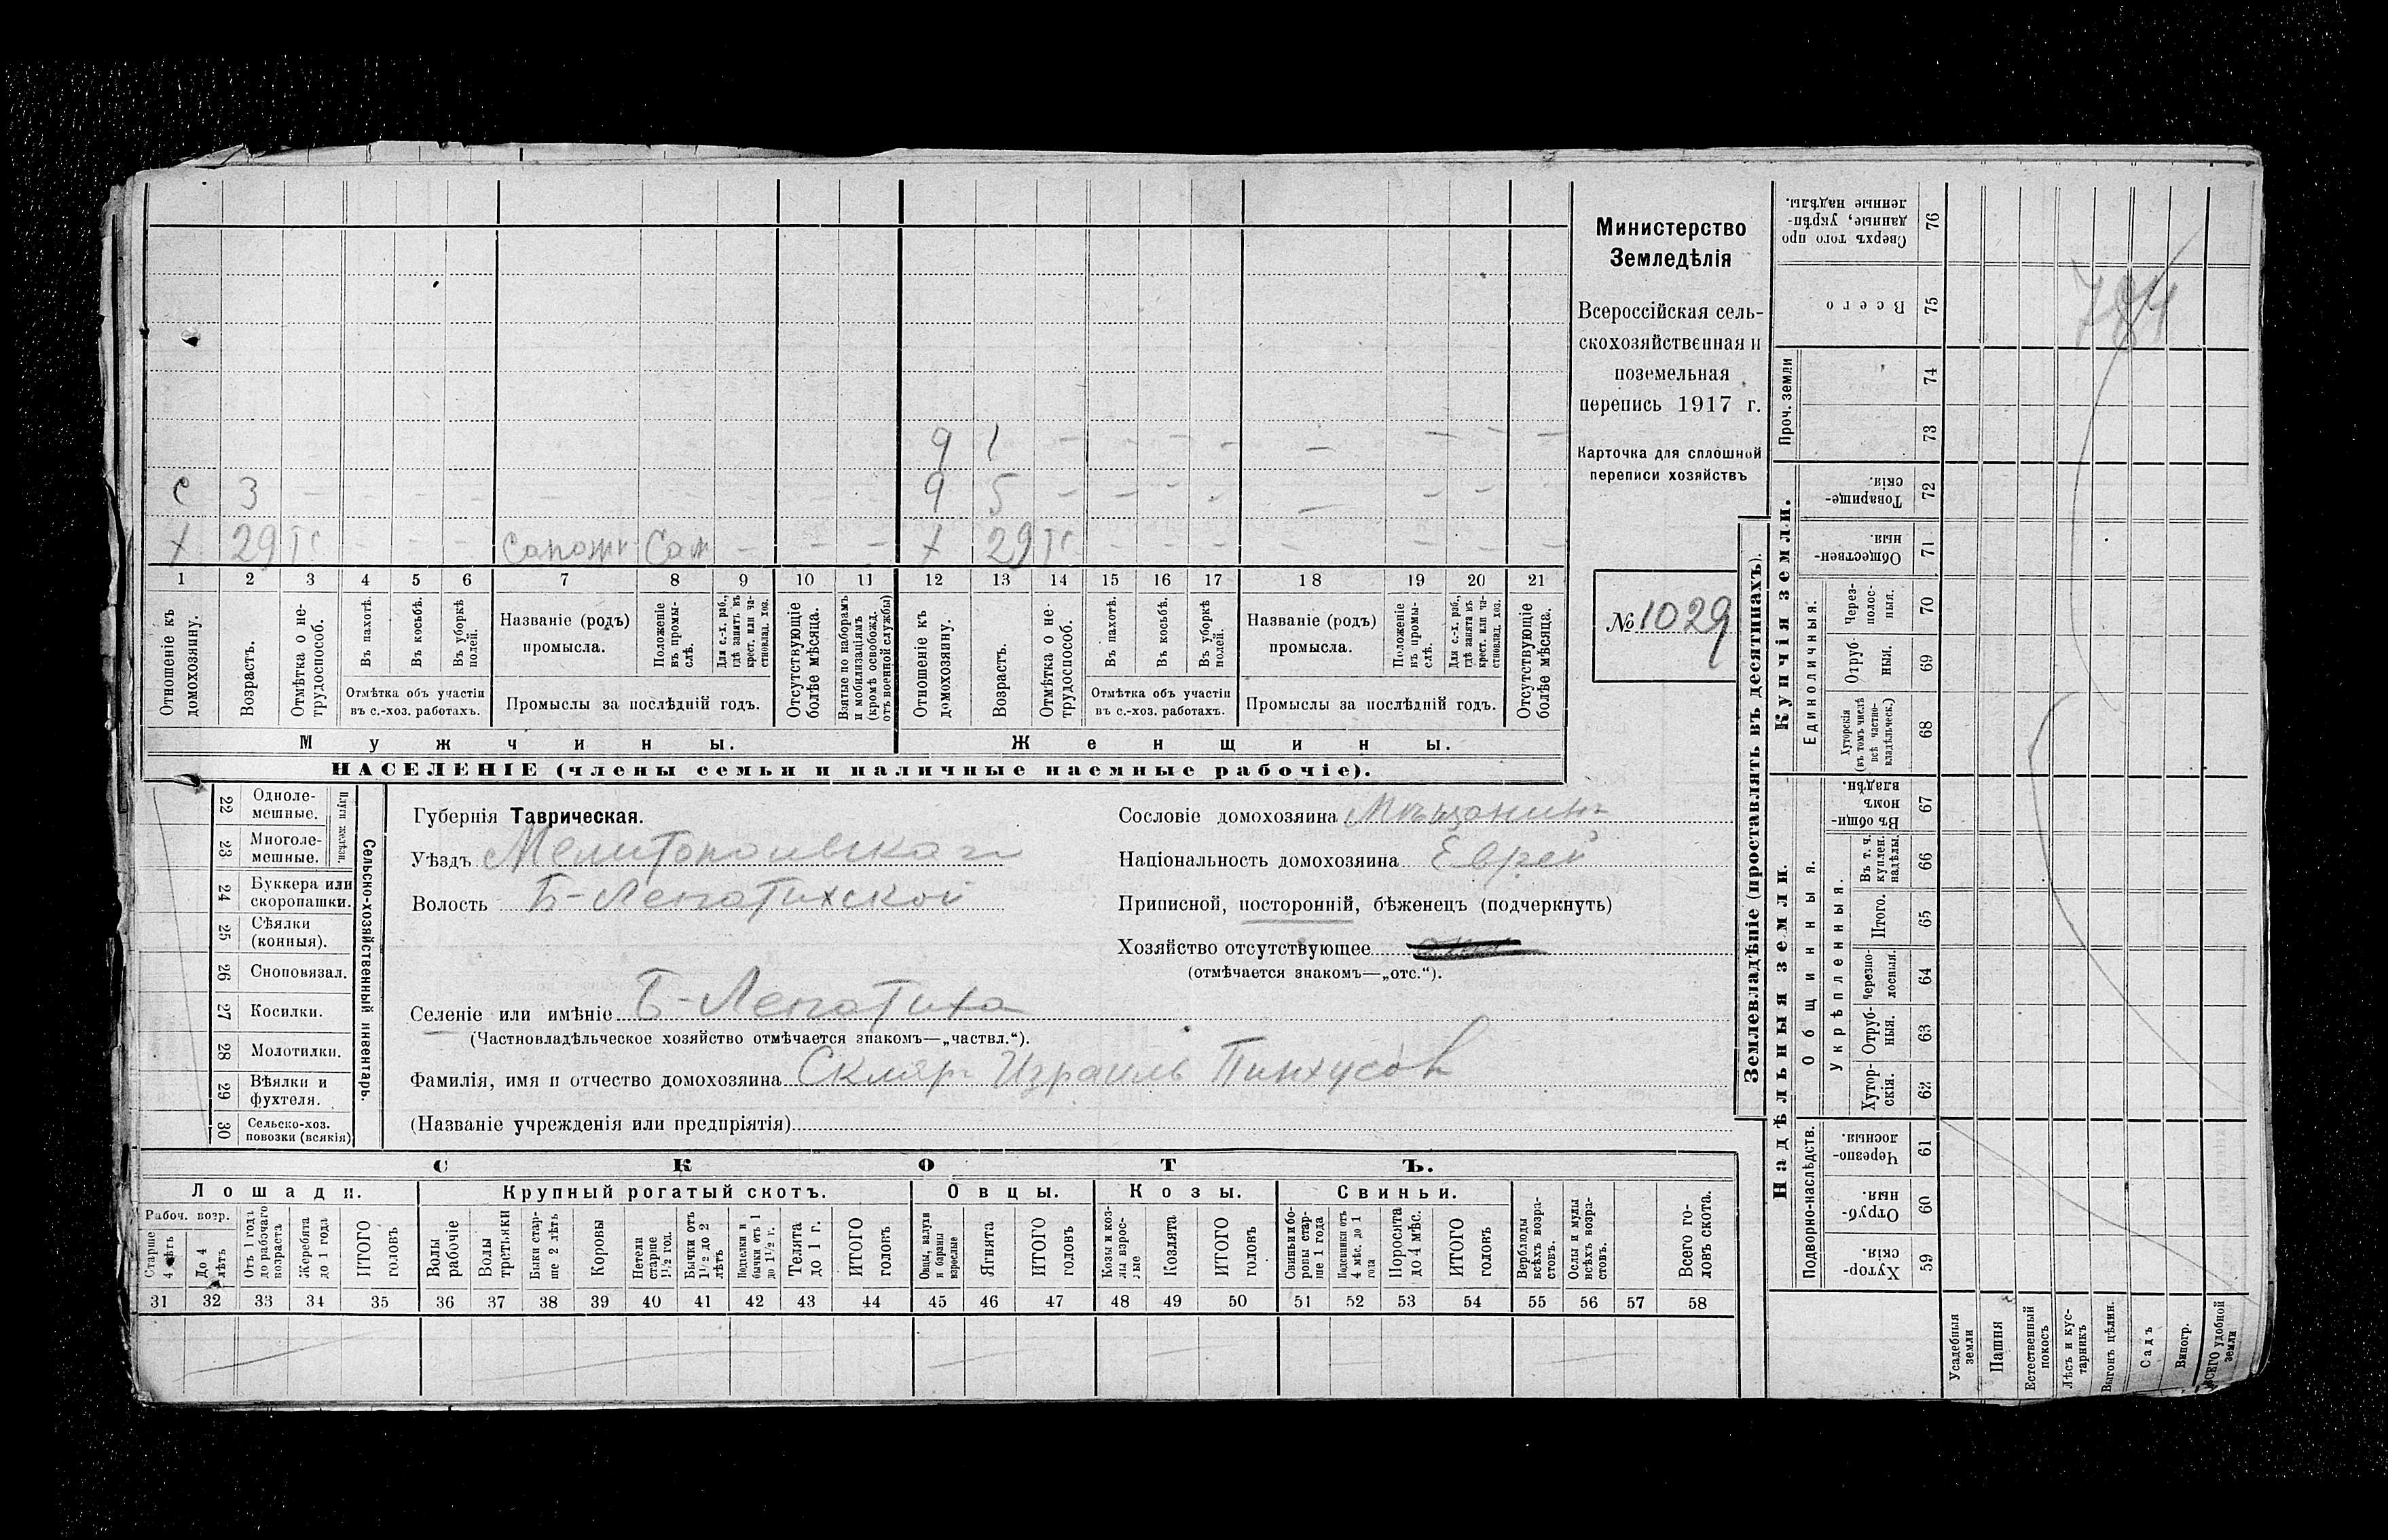 9 1 – – – – – – – –
с 3 – – – – – – – – – 9 5 – – – – – – –
х 29 тс – – – сапожн Сам – – – х 29 тс – – – – – – –
1 2 3 4 5 6 7 8 9 10 11 12 13 14 15 16 17 18 19 20 21
Отношеніе къ домохозяину.
Возрастъ.
Отмѣтка о не-трудоспособ.
Въ пахотѣ.
Въ косьбѣ.
Въ уборкѣ полей.
Отмѣтка объ участіи
въ с.-хоз. работахъ.
Названіе (родъ)
промысла.
Положеніе въ промы-слѣ.
Для с.-х. раб., гдѣ занятъ въ крест. или ча-стновлад. хоз.
Промыслы за послѣдній годъ.
Отсутствующіе болѣе мѣсяца.
Взятые по наборамъ и мобилизаціямъ (кромѣ освобожд. отъ военной службы)
Отношеніе къ домохозяину.
Возрастъ.
Отмѣтка о не-трудоспособ.
Въ пахотѣ.
Въ косьбѣ.
Въ уборкѣ полей.
Отмѣтка объ участіи
въ с.-хоз. работахъ.
Названіе (родъ)
промысла.
Положеніе въ промы-слѣ.
Для с.-х. раб., гдѣ занята въ крест. или ча-стновлад. хоз.
Промыслы за послѣдній годъ.
Отсутствующіе болѣе мѣсяца.
Мужчины. Женщины.
НАСЕЛЕНІЕ (члены семьи и наличные наемные рабочіе).
Министерство
Земледѣлія
Всероссійская сель-
скохозяйственная и
поземельная
перепись 1917 г.
Карточка для сплошной
переписи хозяйствъ
№ 1029
Сельско-хозяйственный инвентарь.
Плуги желѣзн.
22 Одноле-мешные.
23 Многоле-мешные.
24 Буккера или скоропашки.
25 Сѣялки (конныя).
26 Сноповязал.
27 Косилки.
28 Молотилки.
29 Вѣялки и фухтеля.
30 Сельско-хоз. повозки (всякія)
Губернія Таврическая.
Уѣздъ Мелитопольскаго
Волость Б-Лепатихской
Селеніе или имѣніе Б-Лепатиха
(Частновладѣльческое хозяйство отмѣчается знакомъ—„частвл.“).
Фамилія, имя и отчество домохозяина Скляр Израиль Пинхусов
(Названіе учрежденія или предпріятія)
Сословіе домохозяина Мѣщанинъ
Національность домохозяина Еврей
Приписной, посторонній, бѣженецъ (подчеркнуть)
Хозяйство отсутствующее
(отмѣчается знакомъ—„отс.“).
СКОТЪ.
Лошади. Крупный рогатый скотъ. Овцы. Козы. Свиньи.
Рабоч. возр.
Старше 4 лѣтъ
До 4 лѣтъ
Отъ 1 года до рабочаго возраста
Жеребята до 1 года
ИТОГО головъ
Волы рабочіе
Волы третьяки
Быки стар-ше 2 лѣтъ
Коровы
Нетели старше 1½ год.
Бычки отъ 1½ до 2 лѣтъ
Подтелки и бычки отъ 1 до 1½ г.
Телята до 1 г.
ИТОГО головъ
Овцы, валухи и бараны взрослые
Ягнята
ИТОГО головъ
Козы и коз-лы взрос-лые
Козлята
ИТОГО головъ
Свиньи и бо-ровы стар-ше 1 года
Подсвинки отъ 4 мѣс. до 1 года
Поросята до 4 мѣс.
ИТОГО головъ
Верблюды всѣхъ возра-стовъ.
Ослы и мулы всѣхъ возра-стовъ.
Всего го-ловъ скота.
31 32 33 34 35 36 37 38 39 40 41 42 43 44 45 46 47 48 49 50 51 52 53 54 55 56 57 58
Землевладѣніе (проставлять въ десятинахъ).
Купчія земли.
Надѣльныя земли.
Проч. земли
Единоличныя.
Общинныя.
Укрѣпленныя.
Подворно-наслѣдств.
Сверхъ того про данные, укрѣп-ленные надѣлы. 76
Всего 75
74
73
Товарище-скія. 72
Обществен-ныя. 71
Через-полос-ныя. 70
Отруб-ныя. 69
Хуторскія (въ томъ числѣ всѣ частно-владѣльческ.) 68
Въ общин-номъ владѣн. 67
Въ т. ч. куплен. надѣлы 66
Итого. 65
Черезпо-лосныя. 64
Отруб-ныя. 63
Хутор-скія. 62
Черезпо-лосныя. 61
Отруб-ныя. 60
Хутор-скія. 59
Усадебныя земли
Пашня
Естественный покосъ
Лѣсъ и кус-тарникъ
Выгонъ цѣлин.
Садъ
Виногр.
ВСЕГО удобной земли